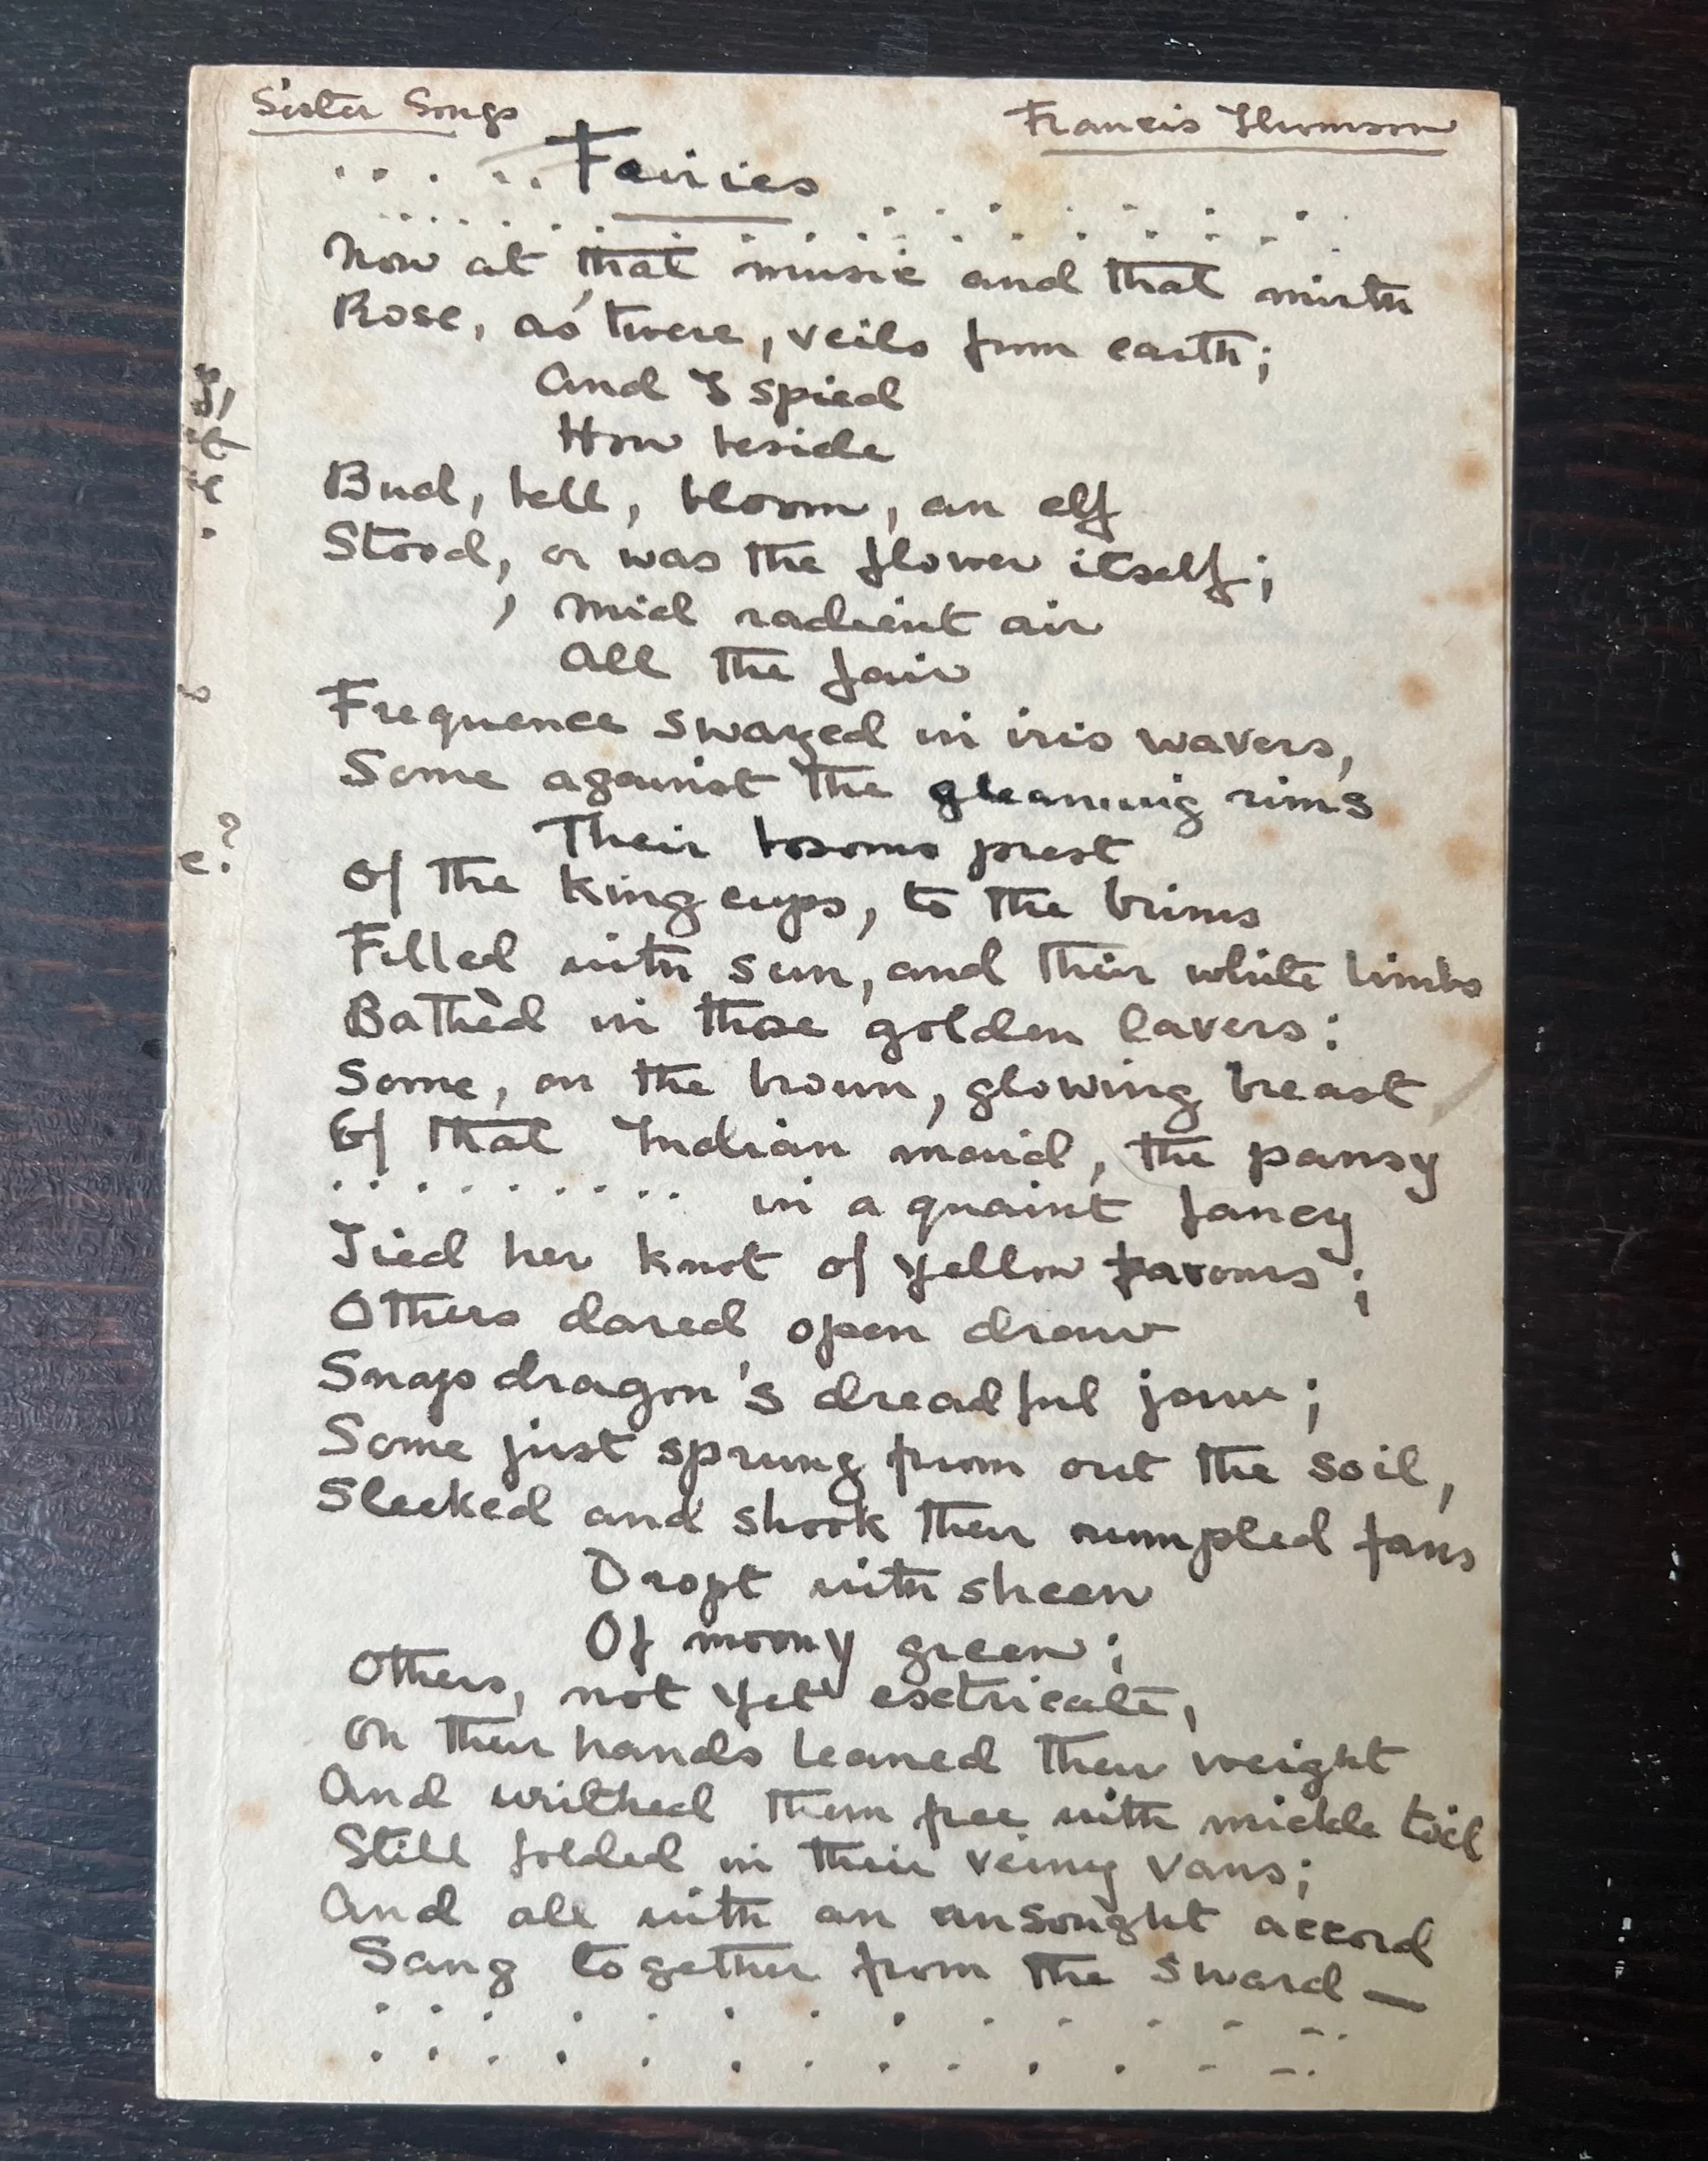 Sister Songs Francis Thomson
. . . . . . Fairies
. . . . . . . . . . . . . . . . . . . .
Now at that music and that mirth
Rose, as 'twere, veils from earth;
And I spied
How beside
Bud, bell, bloom, an elf
Stood, or was the flower itself;
'Mid radient air
All the fair
Frequence swayed in iris wavers,
Some against the gleaming rims
Their bosoms prest
Of the king cups, to the brims
Filled with sun, and their white limbs
Bathèd in those golden lavers:
Some, on the brown, glowing breast
Of that Indian maid, the pansy
. . . . . . . . . . in a quaint fancy
Tied her knot of yellow favours;
Others dared open draw
Snapdragon's dreadful jaw;
Some just sprung from out the soil,
Sleeked and shook their rumpled fans
Dropt with sheen
Of moony green;
Others, not yet extricate,
On their hands leaned their weight
And writhed them free with mickle toil
Still folded in their veiny vans;
And all with an unsought accord
Sang together from the sward —
. . . . . . . . . . . . .
. . . . . . . . . . . . .
e?